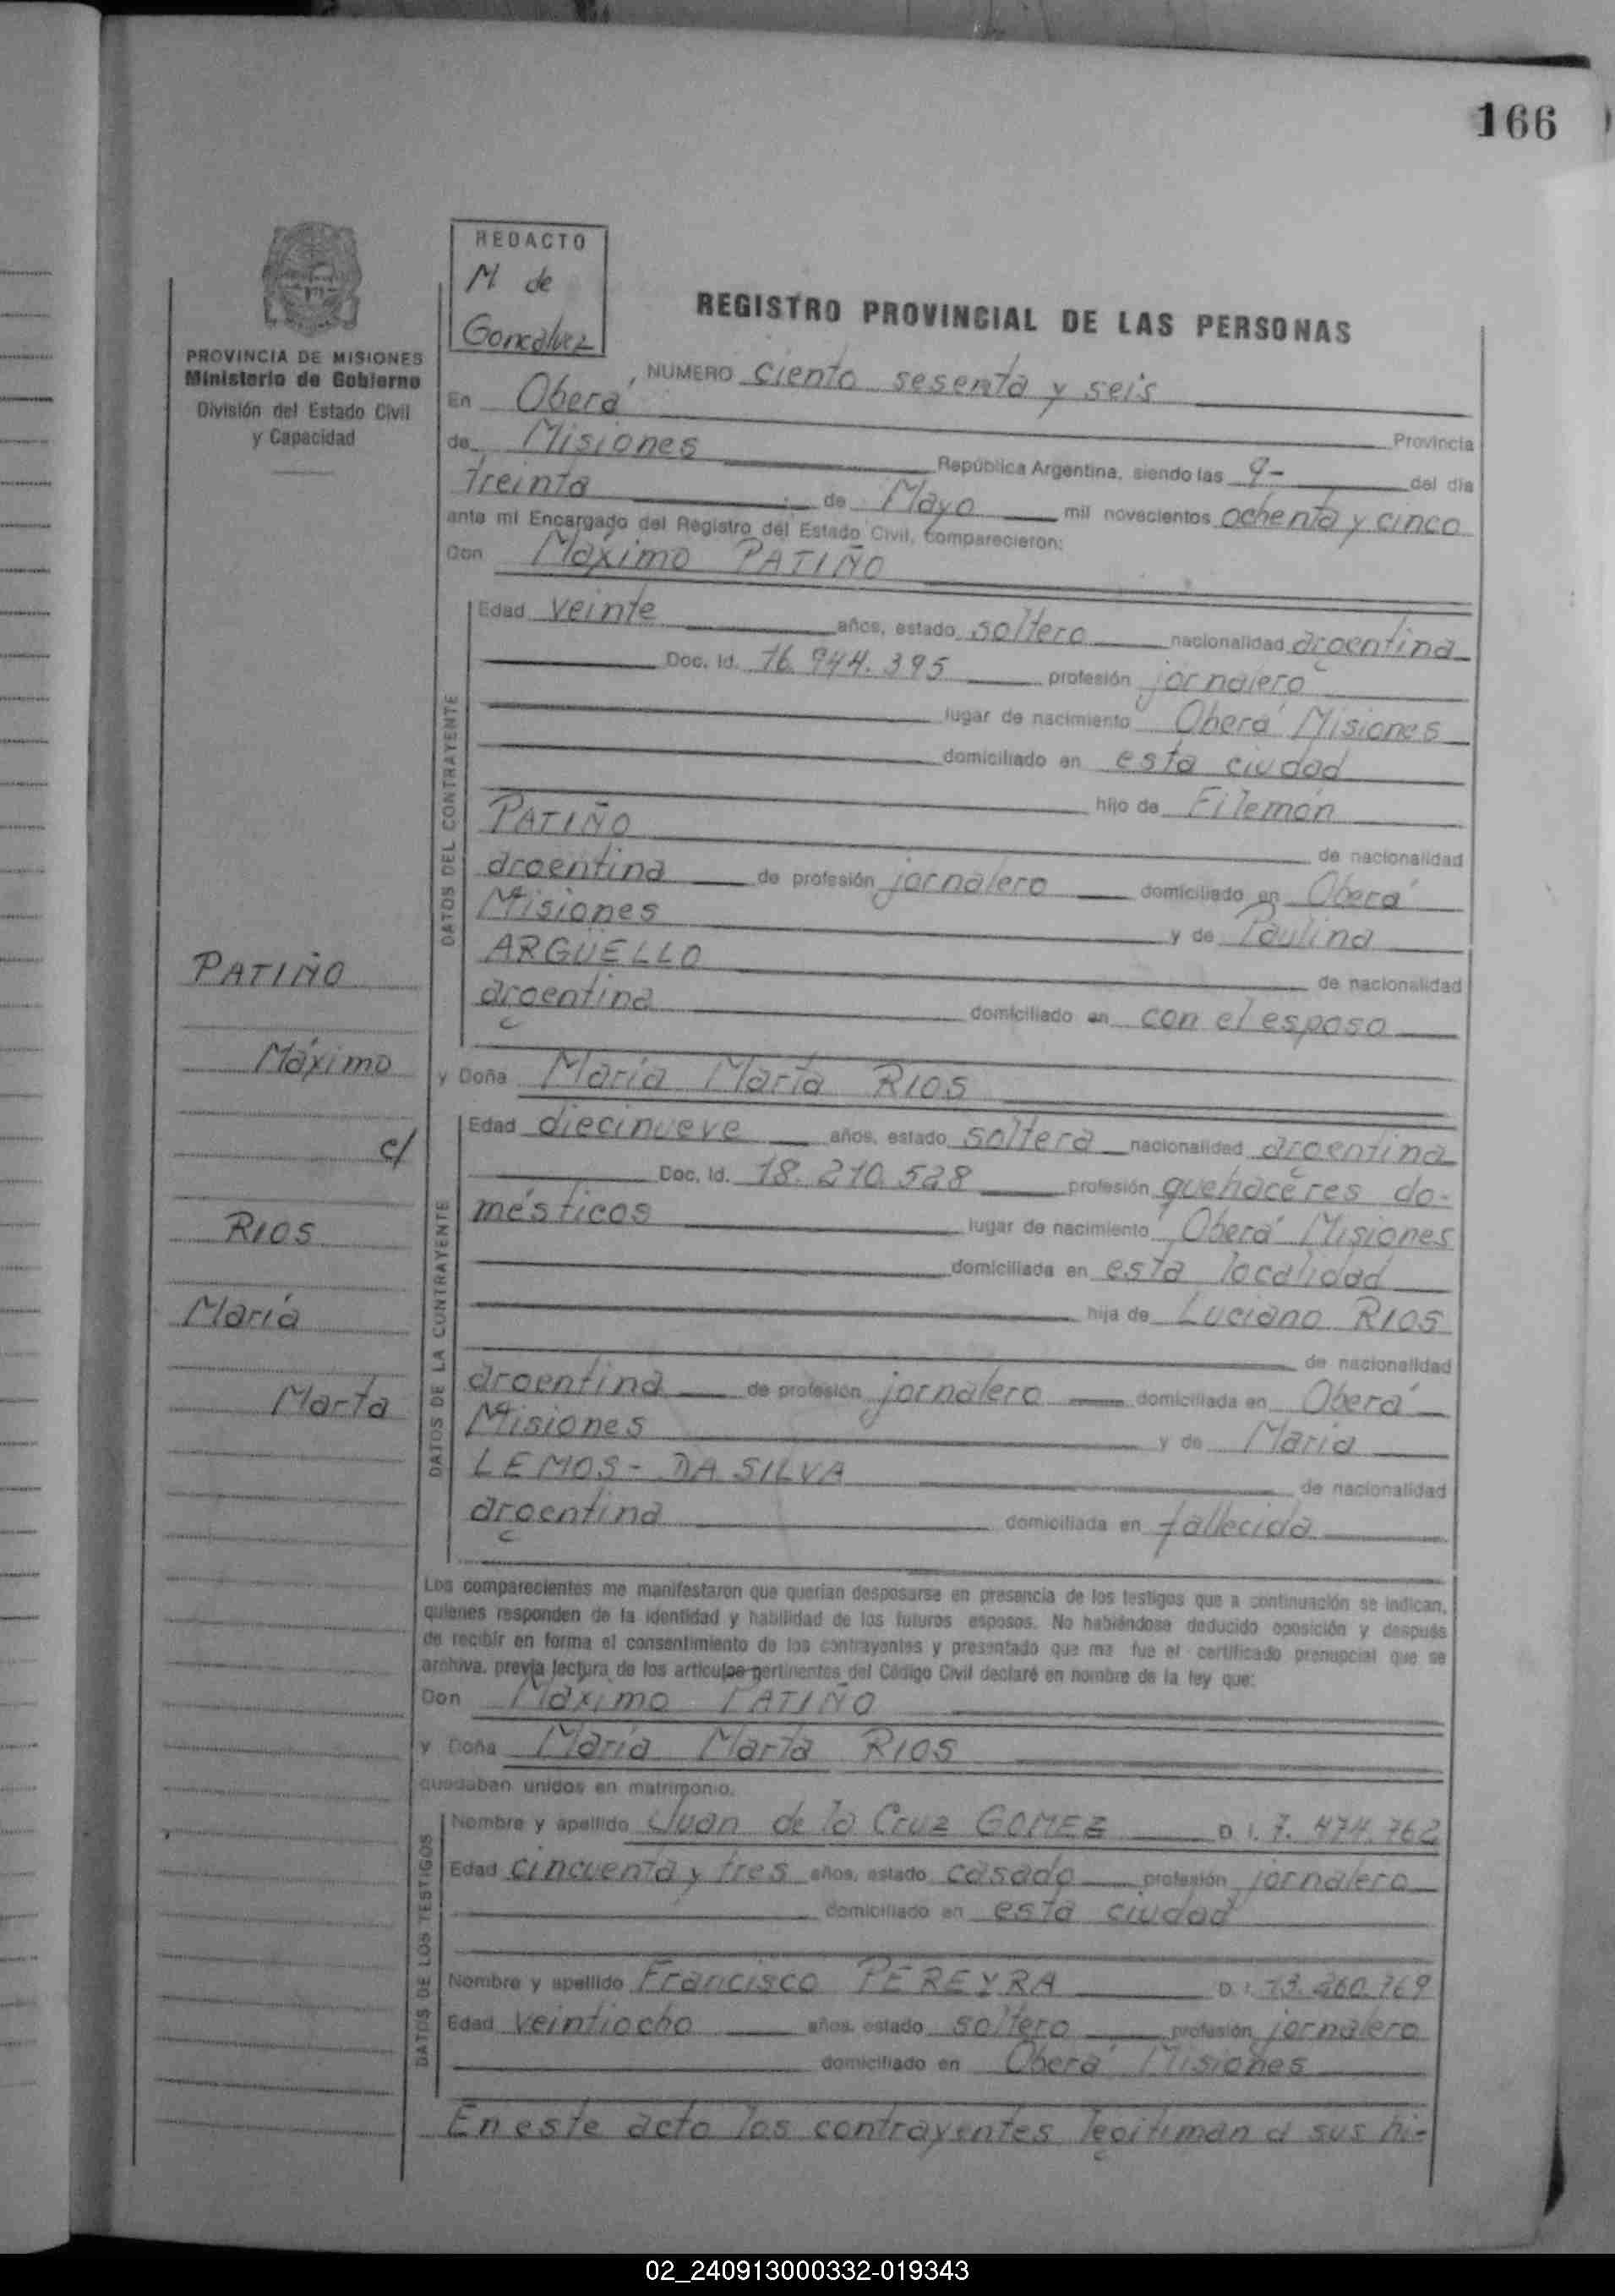 166
REDACTO
M de
Goncalvez
REGISTRO PROVINCIAL DE LAS PERSONAS
PROVINCIA DE MISIONES
Ministerio de Gobierno
División del Estado Civil
y Capacidad
NUMERO ciento sesenta y seis
En Oberá Provincia
de Misiones República Argentina, siendo las 9- del día
treinta de Mayo mil novecientos ochenta y cinco
ante mi Encargado del Registro del Estado Civil, comparecieron:
Don Máximo PATIÑO
DATOS DEL CONTRAYENTE
Edad veinte años, estado soltero nacionalidad argentina
Doc. Id. 16.944.395 profesión jornalero
lugar de nacimiento Oberá Misiones
domiciliado en esta ciudad
hijo de Filemón
PATIÑO de nacionalidad
argentina de profesión jornalero domiciliado en Oberá
Misiones y de Paulina
ARGÜELLO de nacionalidad
argentina domiciliado en con el esposo
PATIÑO
Máximo
c/
RIOS
María
Marta
y Doña María Marta RIOS
DATOS DE LA CONTRAYENTE
Edad diecinueve años, estado soltera nacionalidad argentina
Doc. Id. 18.210.528 profesión quehaceres do-
mésticos lugar de nacimiento Oberá Misiones
domiciliada en esta localidad
hija de Luciano RIOS
de nacionalidad
argentina de profesión jornalero domiciliada en Oberá
Misiones y de María
LEMOS - DA SILVA de nacionalidad
argentina domiciliada en fallecida
Los comparecientes me manifestaron que querían desposarse en presencia de los testigos que a continuación se indican,
quienes responden de la identidad y habilidad de los futuros esposos. No habiéndose deducido oposición y después
de recibir en forma el consentimiento de los contrayentes y presentado que me fue el certificado prenupcial que se
archiva, previa lectura de los artículos pertinentes del Código Civil declaré en nombre de la ley que:
Don Máximo PATIÑO
y Doña María Marta RIOS
quedaban unidos en matrimonio.
DATOS DE LOS TESTIGOS
Nombre y apellido Juan de la Cruz GOMEZ D. I. 7.474.762
Edad cincuenta y tres años, estado casado profesión jornalero
domiciliado en esta ciudad
Nombre y apellido Francisco PEREYRA D. I.
Edad veintiocho años, estado soltero profesión jornalero
domiciliado en Oberá Misiones
En este acto los contrayentes legitiman a sus hi-
02_240913000332-019343